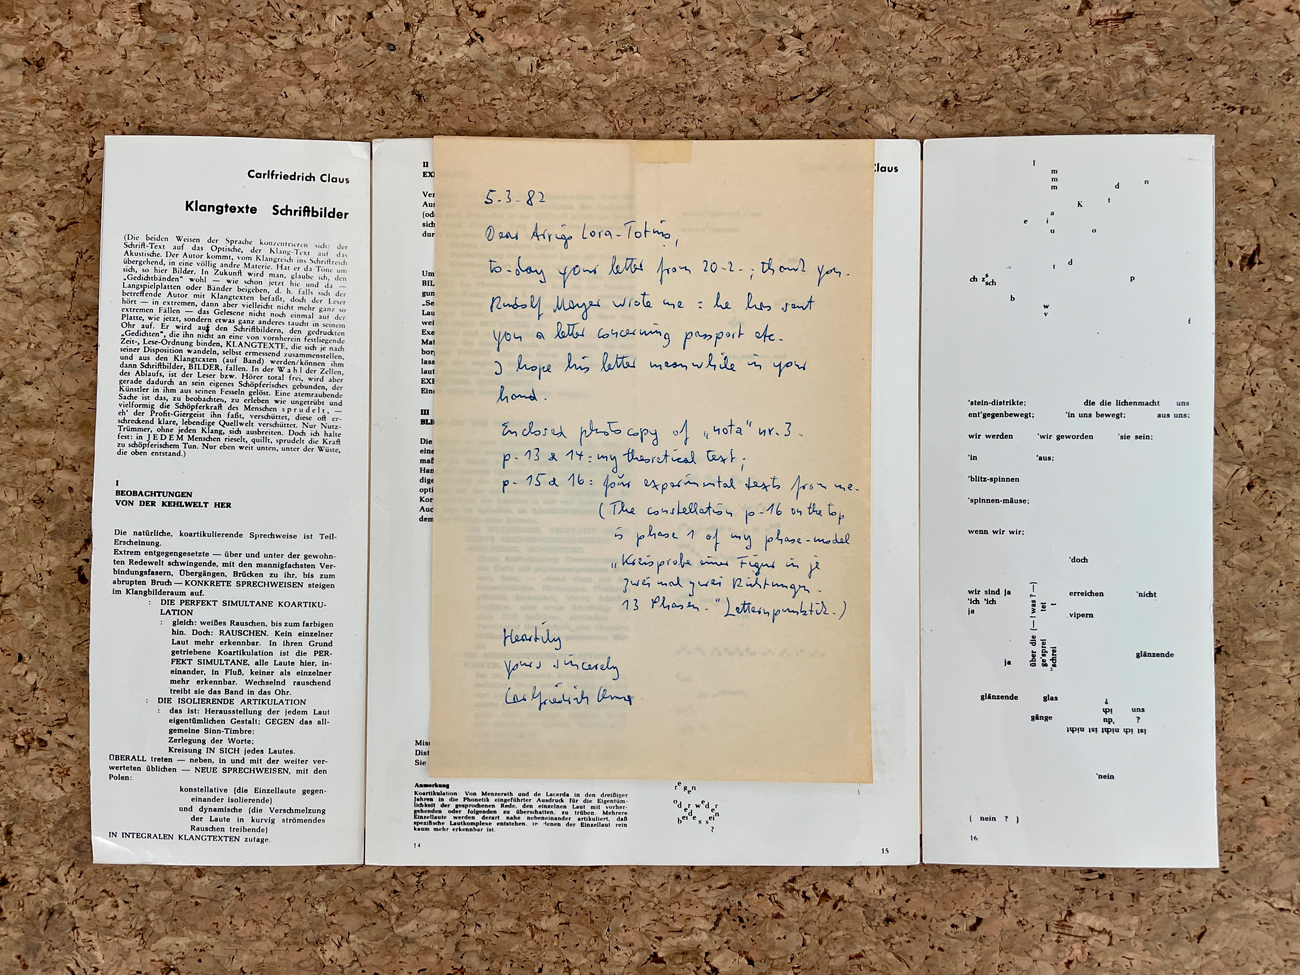 Carlfriedrich Claus
Klangtexte Schriftbilder
(Die beiden Weisen der Sprache konzentrieren sich: der
Schrift-Text auf das Optische, der Klang-Text auf das
Akustische. Der Autor kommt, vom Klangreich ins Schriftreich
übergehend, in eine völlig andre Materie. Hat er da Töne um
sich, so hier Bilder. In Zukunft wird man, glaube ich, den
„Gedichtbänden" wohl — wie schon jetzt hie und da —
Langspielplatten oder Bänder beigeben, d. h. falls sich der
betreffende Autor mit Klangtexten befaßt, doch der Leser
hört — in extremen, dann aber vielleicht nicht mehr ganz so
extremen Fällen — das Gelesene nicht noch einmal auf der
Platte, wie jetzt, sondern etwas ganz anderes taucht in seinem
Ohr auf. Er wird auf den Schriftbildern, den gedruckten
„Gedichten", die ihn nicht an eine von vornherein festliegende
Zeit-, Lese-Ordnung binden, KLANGTEXTE, die sich je nach
seiner Disposition wandeln, selbst ermessend zusammenstellen,
und aus den Klangtexten (auf Band) werden/können ihm
dann Schriftbilder, BILDER, fallen. In der Wahl der Zellen,
des Ablaufs, ist der Leser bzw. Hörer total frei, wird aber
gerade dadurch an sein eigenes Schöpferisches gebunden, der
Künstler in ihm aus seinen Fesseln gelöst. Eine atemraubende
Sache ist das, zu beobachten, zu erleben wie ungetrübt und
vielförmig die Schöpferkraft des Menschen sprudelt, —
eh' der Profit-Giergeist ihn faßt, verschüttet, diese oft er-
schreckend klare, lebendige Quellwelt verschüttet. Nur Nutz-
Trümmer, ohne jeden Klang, sich ausbreiten. Doch ich halte
fest: in JEDEM Menschen rieselt, quillt, sprudelt die Kraft
zu schöpferischem Tun. Nur eben weit unten, unter der Wüste,
die oben entstand.)
I
BEOBACHTUNGEN
VON DER KEHLWELT HER
Die natürliche, koartikulierende Sprechweise ist Teil-
Erscheinung.
Extrem entgegengesetzte — über und unter der gewohn-
ten Redewelt schwingende, mit den mannigfachsten Ver-
bindungsfasern, Übergängen, Brücken zu ihr, bis zum
abrupten Bruch — KONKRETE SPRECHWEISEN steigen
im Klangbilderaum auf.
: DIE PERFEKT SIMULTANE KOARTIKU-
LATION
: gleich: weißes Rauschen, bis zum farbigen
hin. Doch: RAUSCHEN. Kein einzelner
Laut mehr erkennbar. In ihren Grund
getriebene Koartikulation ist die PER-
FEKT SIMULTANE, alle Laute hier, in-
einander, in Fluß, keiner als einzelner
mehr erkennbar. Wechselnd rauschend
treibt sie das Band in das Ohr.
: DIE ISOLIERENDE ARTIKULATION
: das ist: Herausstellung der jedem Laut
eigentümlichen Gestalt; GEGEN das all-
gemeine Sinn-Timbre;
Zerlegung der Worte;
Kreisung IN SICH jedes Lautes.
ÜBERALL treten — neben, in und mit der weiter ver-
werteten üblichen — NEUE SPRECHWEISEN, mit den
Polen:
konstellative (die Einzellaute gegen-
einander isolierende)
und dynamische (die Verschmelzung
der Laute in kurvig strömendes
Rauschen treibende)
IN INTEGRALEN KLANGTEXTEN zutage.
II
EX
Ver
Aus
(od
sich
dur
Um
BIL
gun
„Se
Lau
wei
Exe
Mat
bor
lass
laut
EXI
Eine
III
BLI
Die
eine
maß
Han
dige
opti
Kor
Auc
dem
Claus
5-3-82
Dear Arrigo Lora-Totino,
to-day your letter from 20-2-; thank you.
Rudolf Mayer wrote me : he has sent
you a letter concerning passport etc.
I hope his letter meanwhile in your
hand.
Enclosed photocopy of „nota" nr. 3.
p. 13 a 14: my theoretical text;
p. 15 a 16: four experimental texts from me.
(The constellation p. 16 on the top
is phase 1 of my phase-model
„Kreisprobe einer Figur in je
zwei mal zwei Richtungen.
13 Phasen." Letternpunktik.)
Heartily
yours sincerely
Carlfriedrich Claus
Misc
Dist
Sie
Anmerkung
Koartikulation: Von Menzerath und de Lacerda in den dreißiger
Jahren in die Phonetik eingeführter Ausdruck für die Eigentüm-
lichkeit der gesprochenen Rede, den einzelnen Laut mit vorher-
gehenden oder folgenden zu überschatten, zu trüben. Mehrere
Einzellaute werden derart nahe nebeneinander artikuliert, daß
spezifische Lautkomplexe entstehen, in denen der Einzellaut rein
kaum mehr erkennbar ist.
14
regen
?
15
l
m
m
m
d
n
K
t
a
e
i
u
o
t
d
ch z s sch
p
b
w
v
f
'stein-distrikte; die die lichenmacht uns
ent'gegenbewegt; 'in uns bewegt; aus uns;
wir werden 'wir geworden 'sie sein;
'in 'aus;
'blitz-spinnen
'spinnen-mäuse;
wenn wir wir;
'doch
wir sind ja erreichen 'nicht
'ich 'ich
ja vipern
über die (— I was ? —)
ge'sprei tet t
'schrei
ja glänzende
glänzende glas
gänge
ich uns
?
ist ich nicht ist nicht
'nein
( nein ? )
16